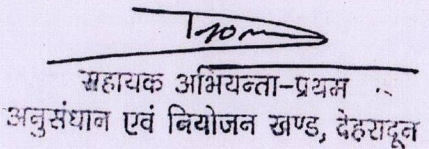 सहायक अभियन्ता-प्रथम
अनुसंधान एवं नियोजन खण्ड, देहरादून